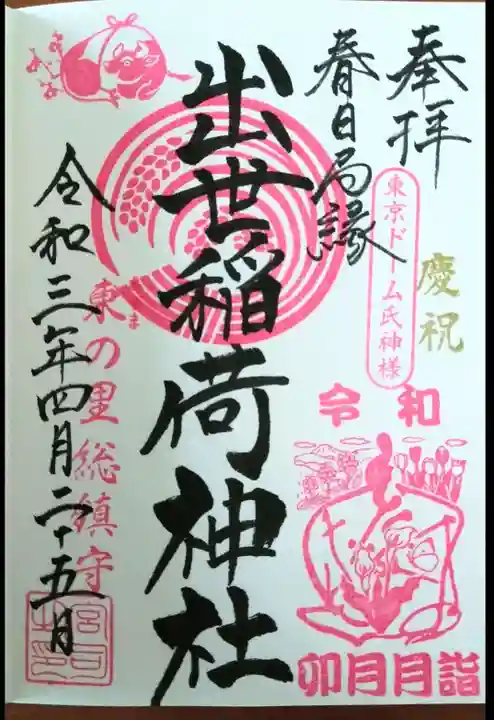 奉拝
慶祝
春日局縁
東京ドーム氏神様
令和
卯月月詣
出世稲荷神社
東の里総鎮守
令和三年四月二十五日